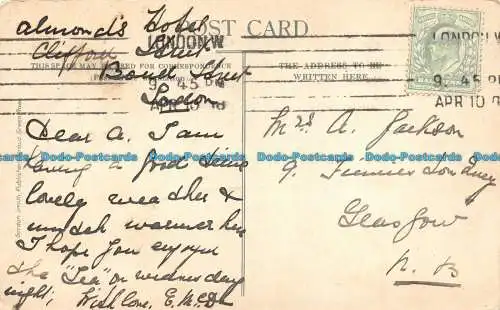 almond's Hotel
Clifford Street
Bond Street
London
POST CARD
THIS SPACE MAY BE USED FOR CORRESPONDENCE
THE ADDRESS TO BE
WRITTEN HERE.
LONDON.W
9. 45 PM
APR 10
LONDON.W
9. 45 PM
APR 10 0
Dear A. I am
having a good time
lovely weather &
much warmer here
I hope you enjoyed
the "Tea" on wednesday
night; With love, E.M.D
Mrs A. Jackson
9. Gardens
Glasgow
N. B
Dodo-Postcards Dodo-Postcards Dodo-Postcards Dodo-Postcards Dodo-Postcards